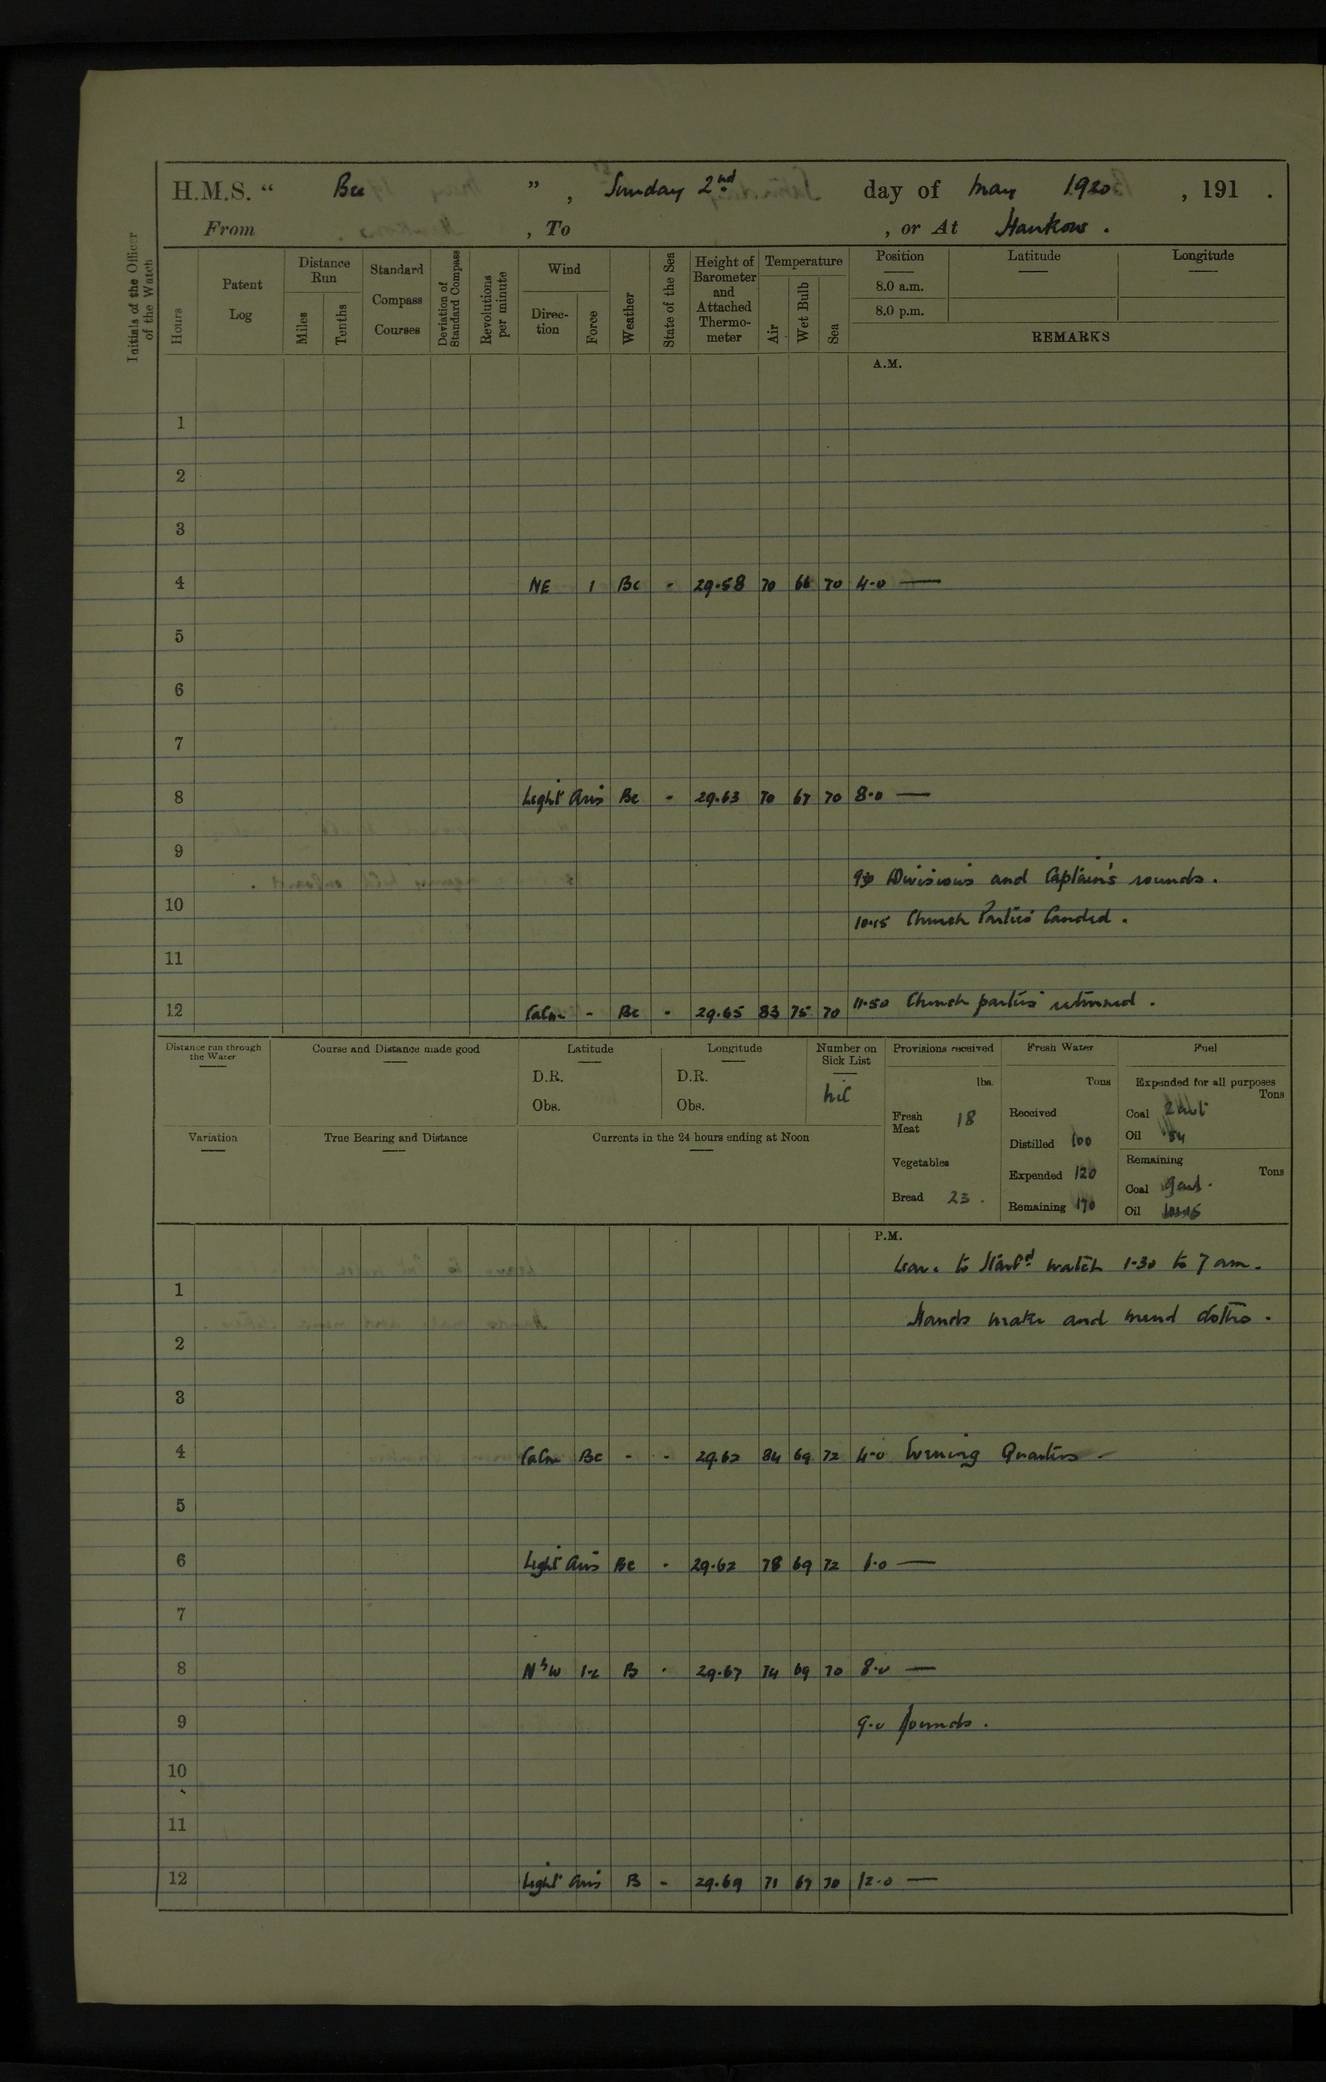 H.M.S. “ Bee ” , Sunday 2nd day of May 1920 , 191 .
From , To , or At Hankow .
Initials of the Officer of the Watch
Hours
Patent Log
Distance Run
Miles
Tenths
Standard Compass Courses
Deviation of Standard Compass
Revolutions per minute
Wind
Direction
Force
Weather
State of the Sea
Height of Barometer and Attached Thermometer
Temperature
Air
Wet Bulb
Sea
Position Latitude Longitude
8.0 a.m.
8.0 p.m.
REMARKS
A.M.
1
2
3
4 NE 1 Bc - 29.58 70 66 70 4.0 —
5
6
7
8 Light airs Bc - 29.63 70 67 70 8.0 —
9
930 Divisions and Captain's rounds.
10
10.15 Church Parties landed.
11
12 Calm - Bc - 29.65 83 75 70 11.50 Church parties returned.
Distance run through the Water
Course and Distance made good
Latitude
D.R.
Obs.
Longitude
D.R.
Obs.
Number on Sick List
nil
Provisions received
lbs.
Fresh Meat 18
Vegetables
Bread 23.
Fresh Water
Tons
Received
Distilled 100
Expended 120
Remaining 170
Fuel
Expended for all purposes
Tons
Coal
Oil .54
Remaining
Tons
Coal
Oil
Variation
True Bearing and Distance
Currents in the 24 hours ending at Noon
P.M.
Leave to Starbd watch 1-30 to 7 am.
1
Hands make and mend clothes.
2
3
4 Calm Bc - - 29.62 84 69 72 4.0 Evening Quarters —
5
6 Light airs Bc - 29.62 78 69 72 6.0 —
7
8 NbW 1-2 B - 29.67 74 69 70 8.0 —
9 9.0 Rounds.
10
11
12 Light airs B - 29.69 71 67 70 12.0 —